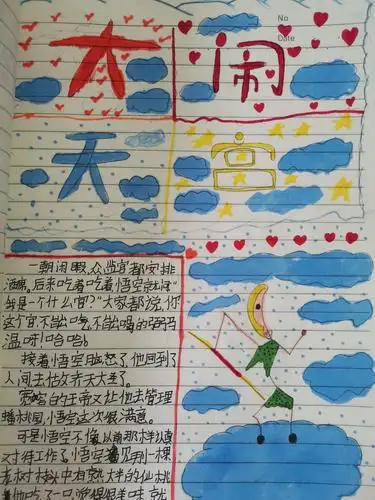 大闹
天宫
No
Date
一朝闲暇,众监官都安排
酒席,后来吃着吃着悟空就问"
我是一个什么官?"大家都说,你
这个官,不能吃,不能喝的
温呀!哈哈!
接着悟空恼怒了,他回到了
人间去做齐天大圣了。
玉帝又让他去管理
蟠桃园,悟空这次很满意。
可是悟空不像以前那样认真
对待工作了,悟空看见那一棵
老树树中有熟大半的仙桃
他吃了一口觉得很美味,就